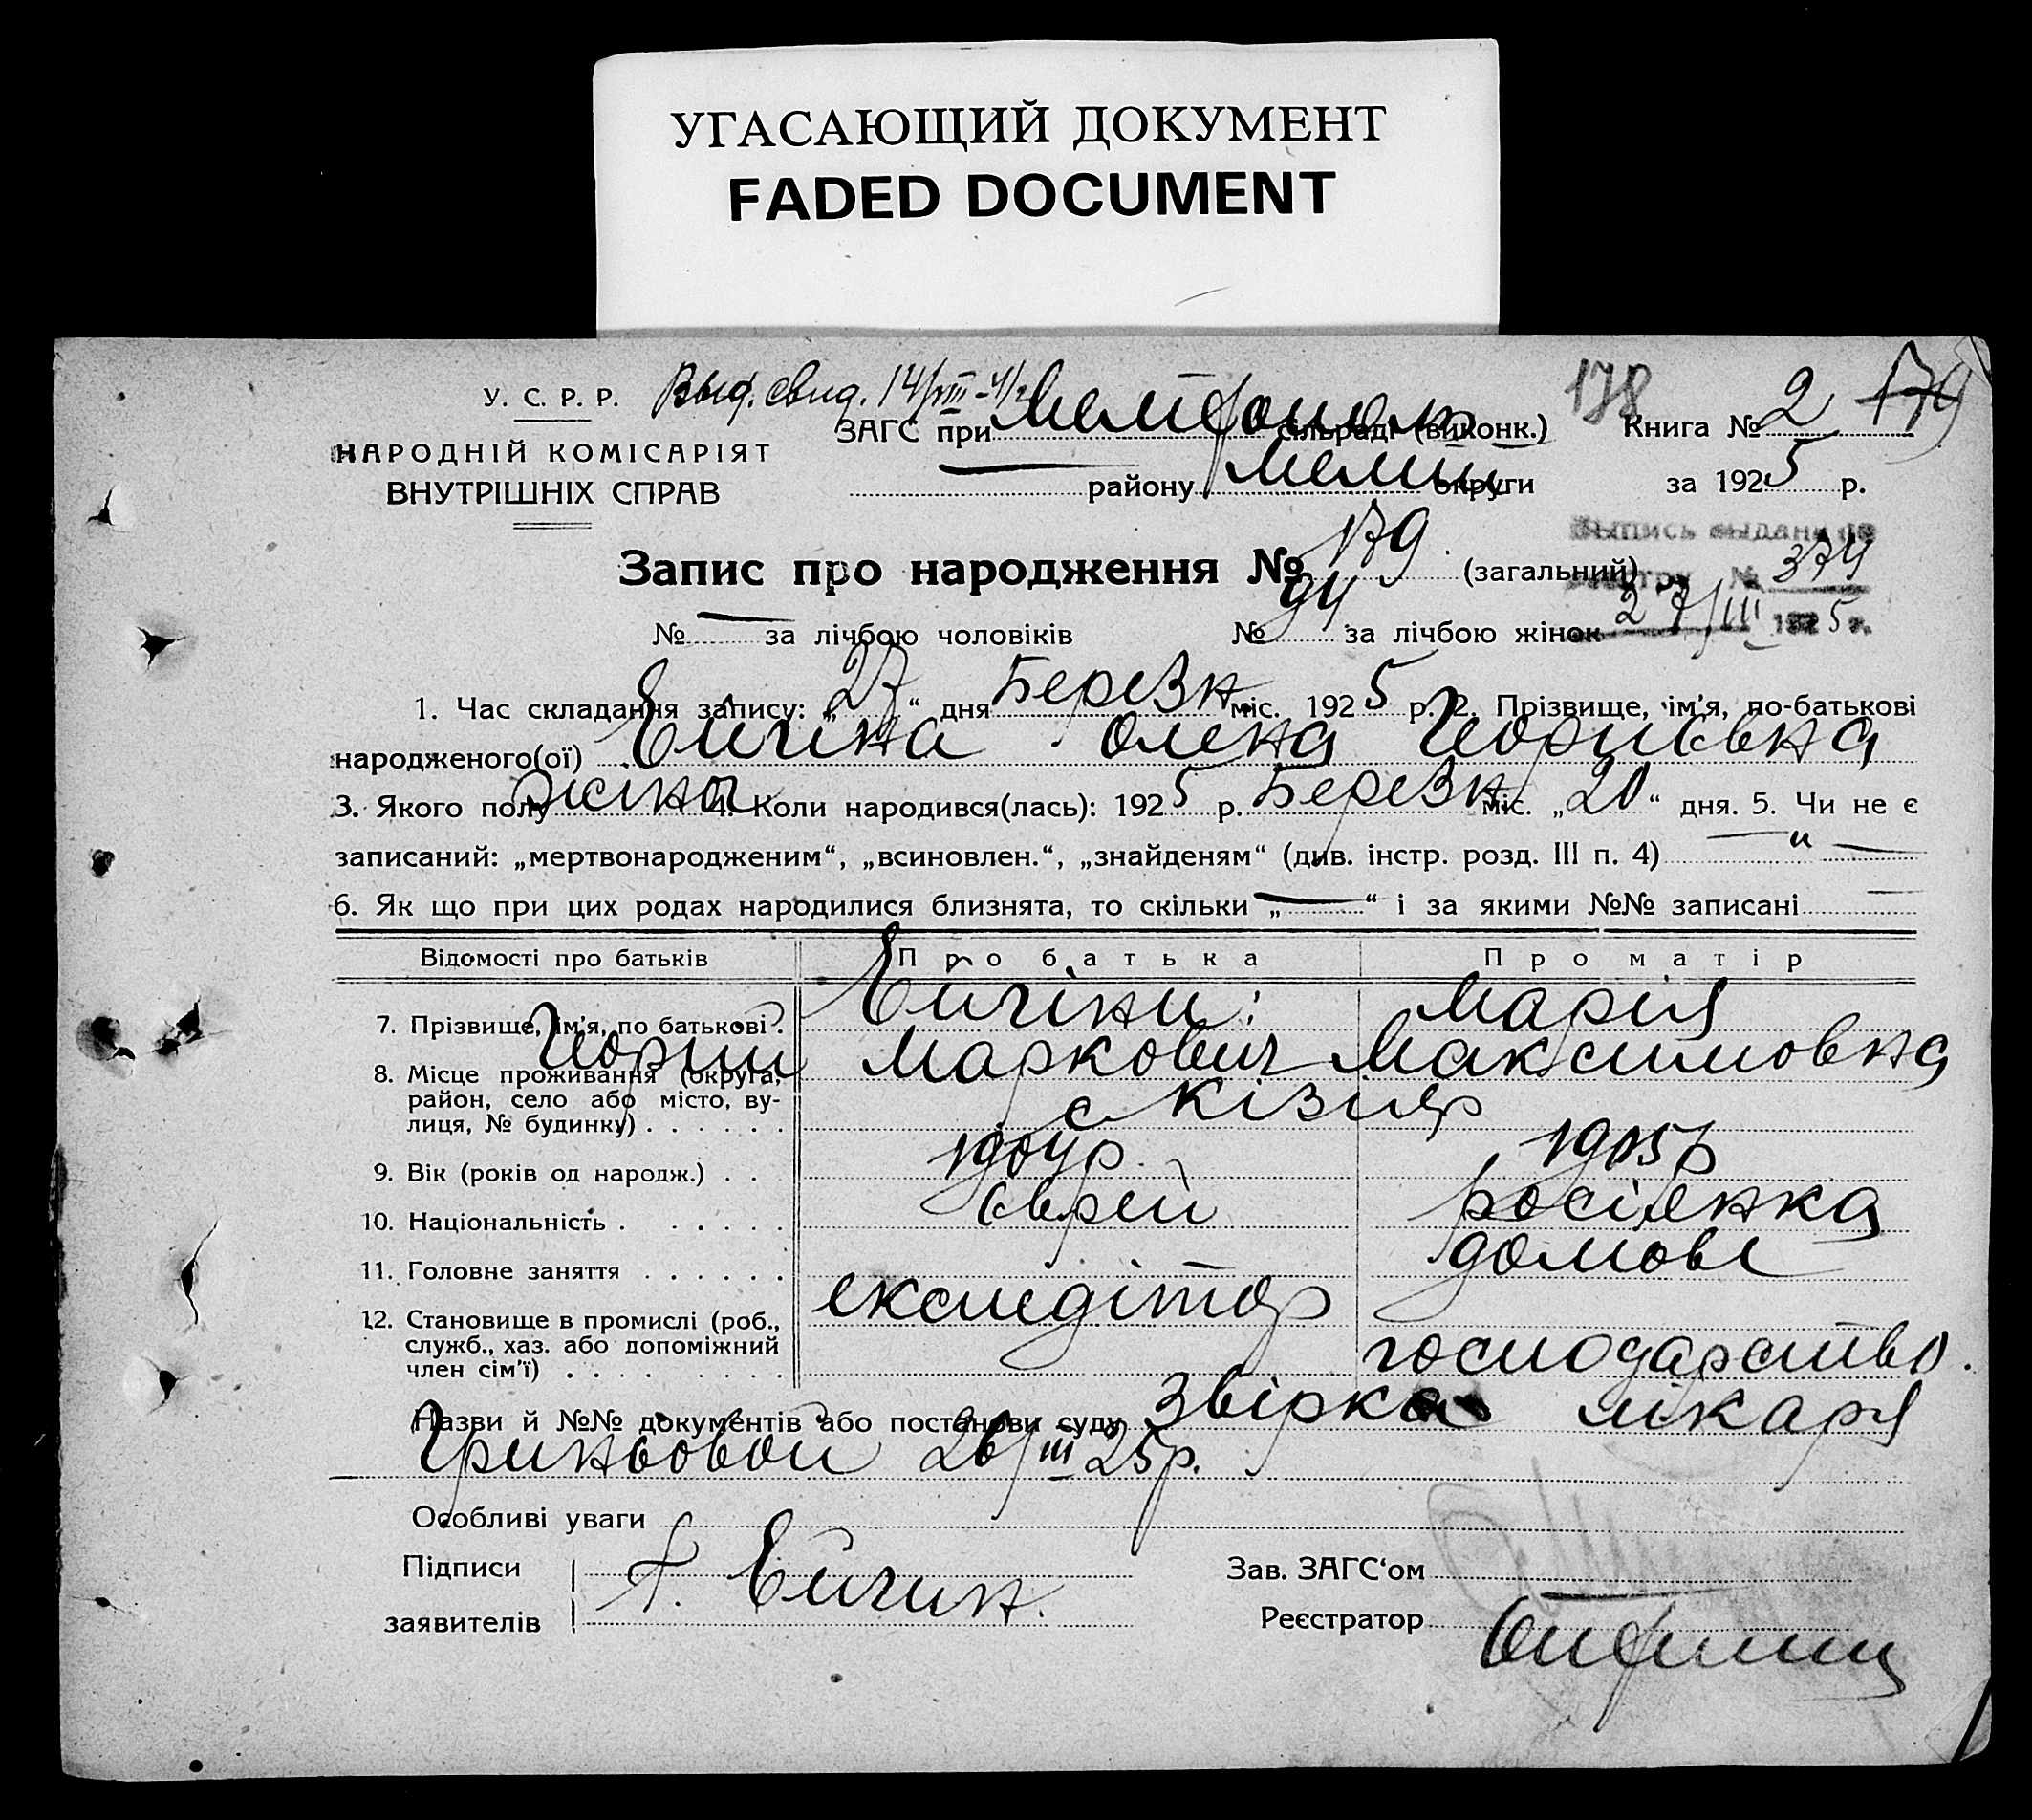 УГАСАЮЩИЙ ДОКУМЕНТ
FADED DOCUMENT
У. С. Р. Р. Выд. свид. 14/VIII-41 178 179
ЗАГС при сільраді (виконк.) Книга № 2
НАРОДНІЙ КОМІСАРІЯТ
ВНУТРІШНІХ СПРАВ
району Мелит. округи за 1925 р.
Выпись выдана
Запис про народження № 179 (загальний)
№ 374
№ — за лічбою чоловіків № 94 за лічбою жінок
27/III 1925 г.
1. Час складання запису: „27“ дня Березн. міс. 1925 р. 2. Прізвище, ім'я, по-батькові
народженого(ої) Ейгіна Олена Йоріївна
3. Якого полу жіноч 4. Коли народився(лась): 1925 р. Березн. міс. „20“ дня. 5. Чи не є
записаний: „мертвонародженим“, „всиновлен.“, „знайденям“ (див. інстр. розд. III п. 4) — „ —
6. Як що при цих родах народилися близнята, то скільки „—“ і за якими №№ записані —
Відомості про батьків Про батька Про матір
7. Прізвище, ім'я, по батькові. Ейгіни: Мария
Йорій Маркович Максимовна
8. Місце проживання (округа, район, село або місто, вулиця, № будинку) . . . . . . с Кізияр
9. Вік (років од народж.) . . 1904р. 1905р
10. Національність . . . . . . Єврей росіянка
11. Головне заняття . . . . . . експедітор домове
12. Становище в промислі (роб., служб., хаз. або допоміжний член сім'ї) . . . . . . . . господарство.
Назви й №№ документів або постанови суду Звірка лікаря
Гриньовой 26/III 25р.
Особливі уваги
Підписи
заявителів Г. Ейгин.
Зав. ЗАГС'ом
Реєстратор